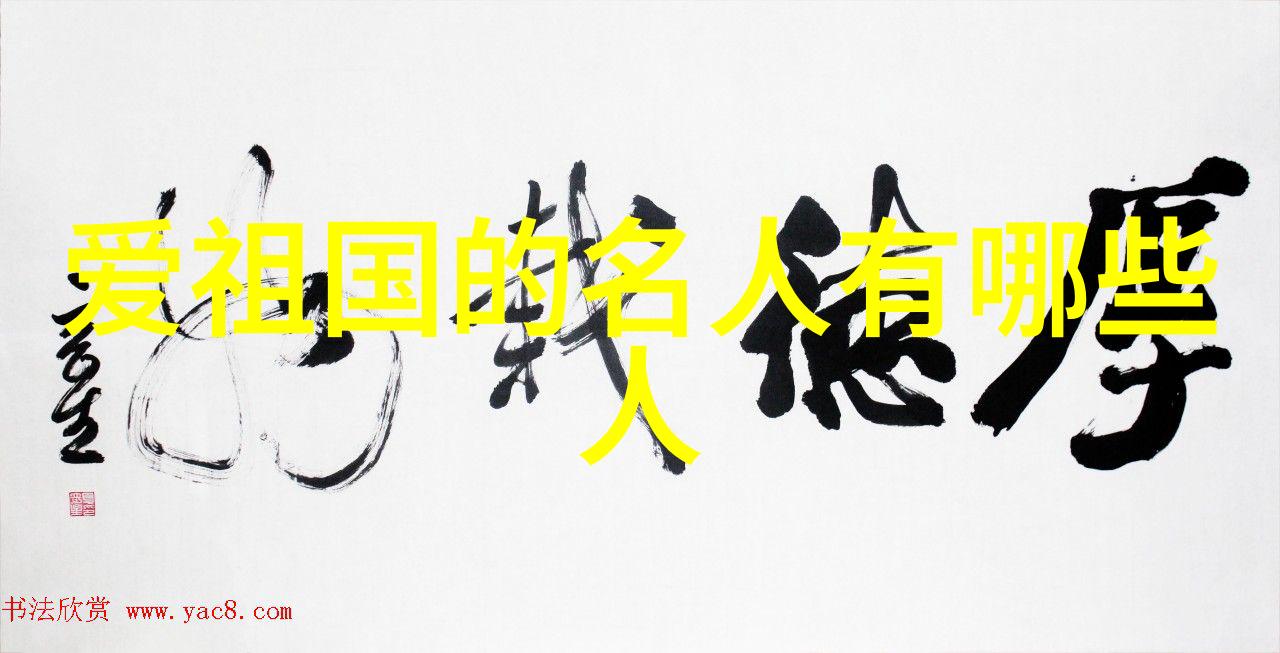 爱祖国的名人有哪些
人
厚德载物
书法欣赏 www.yac8.com